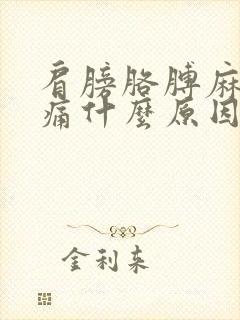 肩膀胳膊麻
痛什麼原因
金利来